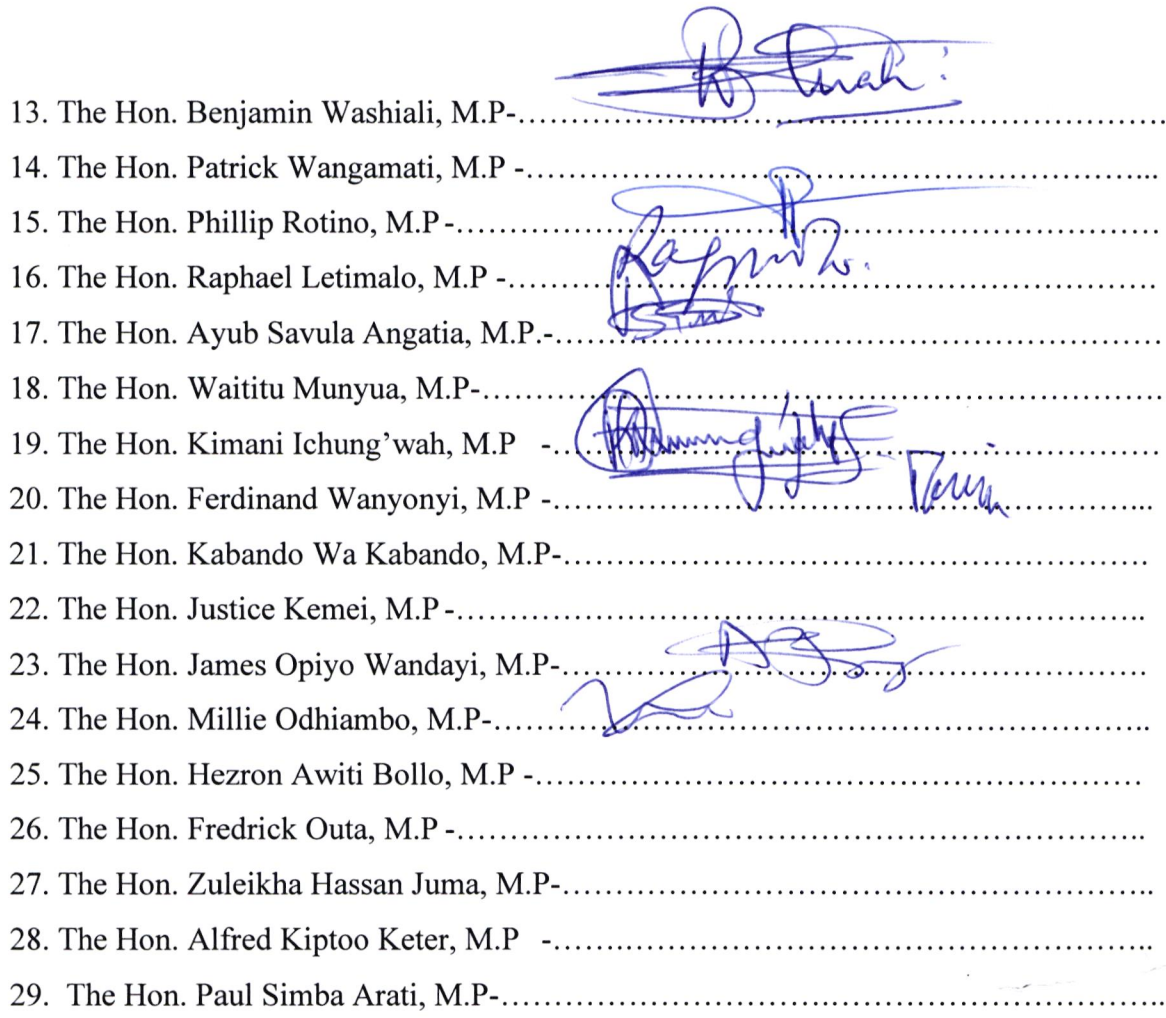 13. The Hon. Benjamin Washiali, M.P-……………………………………………………………
14. The Hon. Patrick Wangamati, M.P -…………………………………………………………...
15. The Hon. Phillip Rotino, M.P-…………………………………………………………………
16. The Hon. Raphael Letimalo, M.P -……………………………………………………………
17. The Hon. Ayub Savula Angatia, M.P.-…………………………………………………………
18. The Hon. Waititu Munyua, M.P-………………………………………………………………
19. The Hon. Kimani Ichung’wah, M.P -…………………………………………………………
20. The Hon. Ferdinand Wanyonyi, M.P -………………………………………………………...
21. The Hon. Kabando Wa Kabando, M.P-………………………………………………………
22. The Hon. Justice Kemei, M.P-………………………………………………………………..
23. The Hon. James Opiyo Wandayi, M.P-………………………………………………………
24. The Hon. Millie Odhiambo, M.P-…………………………………………………………….
25. The Hon. Hezron Awiti Bollo, M.P -…………………………………………………………
26. The Hon. Fredrick Outa, M.P -………………………………………………………………..
27. The Hon. Zuleikha Hassan Juma, M.P-……………………………………………………..
28. The Hon. Alfred Kiptoo Keter, M.P -………………………………………………………..
29. The Hon. Paul Simba Arati, M.P-……………………………………………………………..